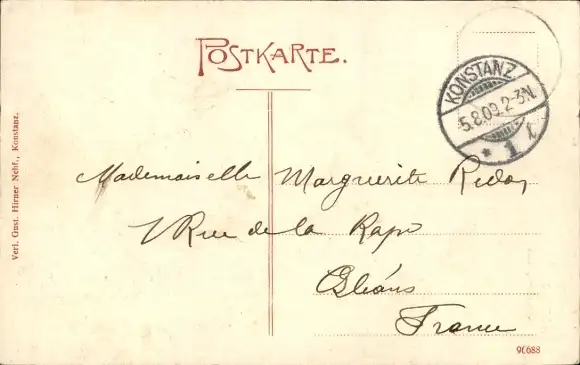 POSTKARTE.
KONSTANZ
5.8.09.2-3N.
* 1 l
Mademoiselle Marguerite
Rue de la Rape
Orléans
France
Verl. Gust. Hirner Nchf., Konstanz.
90688